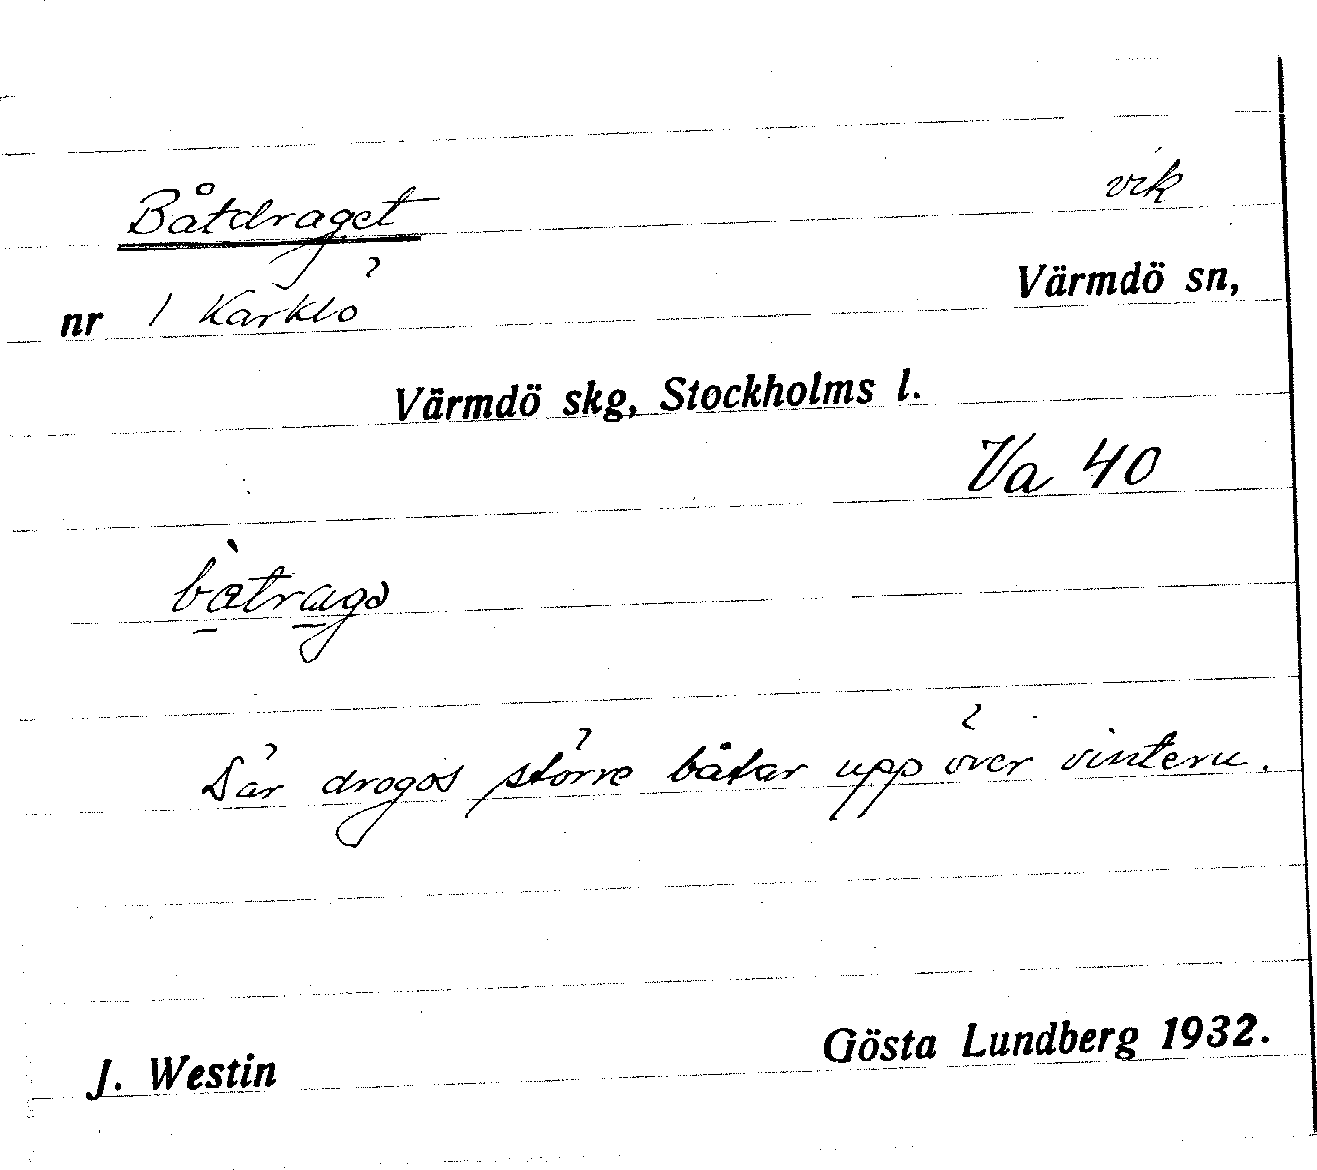 Båtdraget vik
nr 1 Karklö Värmdö sn,
Värmdö skg, Stockholms l.
Va 40
bàtragə
Där drogos större båtar upp över vintern.
J. Westin Gösta Lundberg 1932.